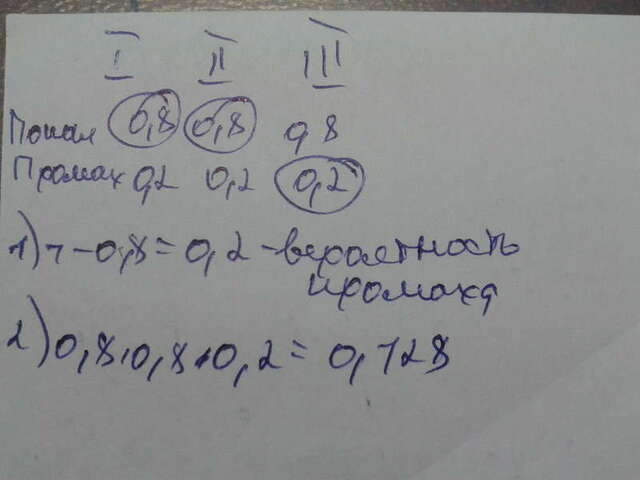 I II III
Попал 0,8 0,8 0,8
Промах 0,2 0,2 0,2
1) 1-0,8=0,2-вероятность
промаха
2) 0,8·0,8·0,2=0,128